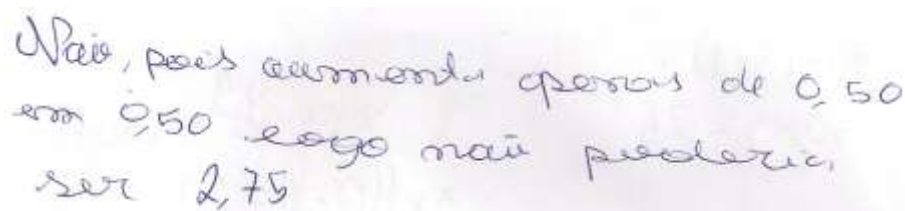 Não, pois aumenta apenas de 0,50
em 0,50 logo não poderia
ser 2,75